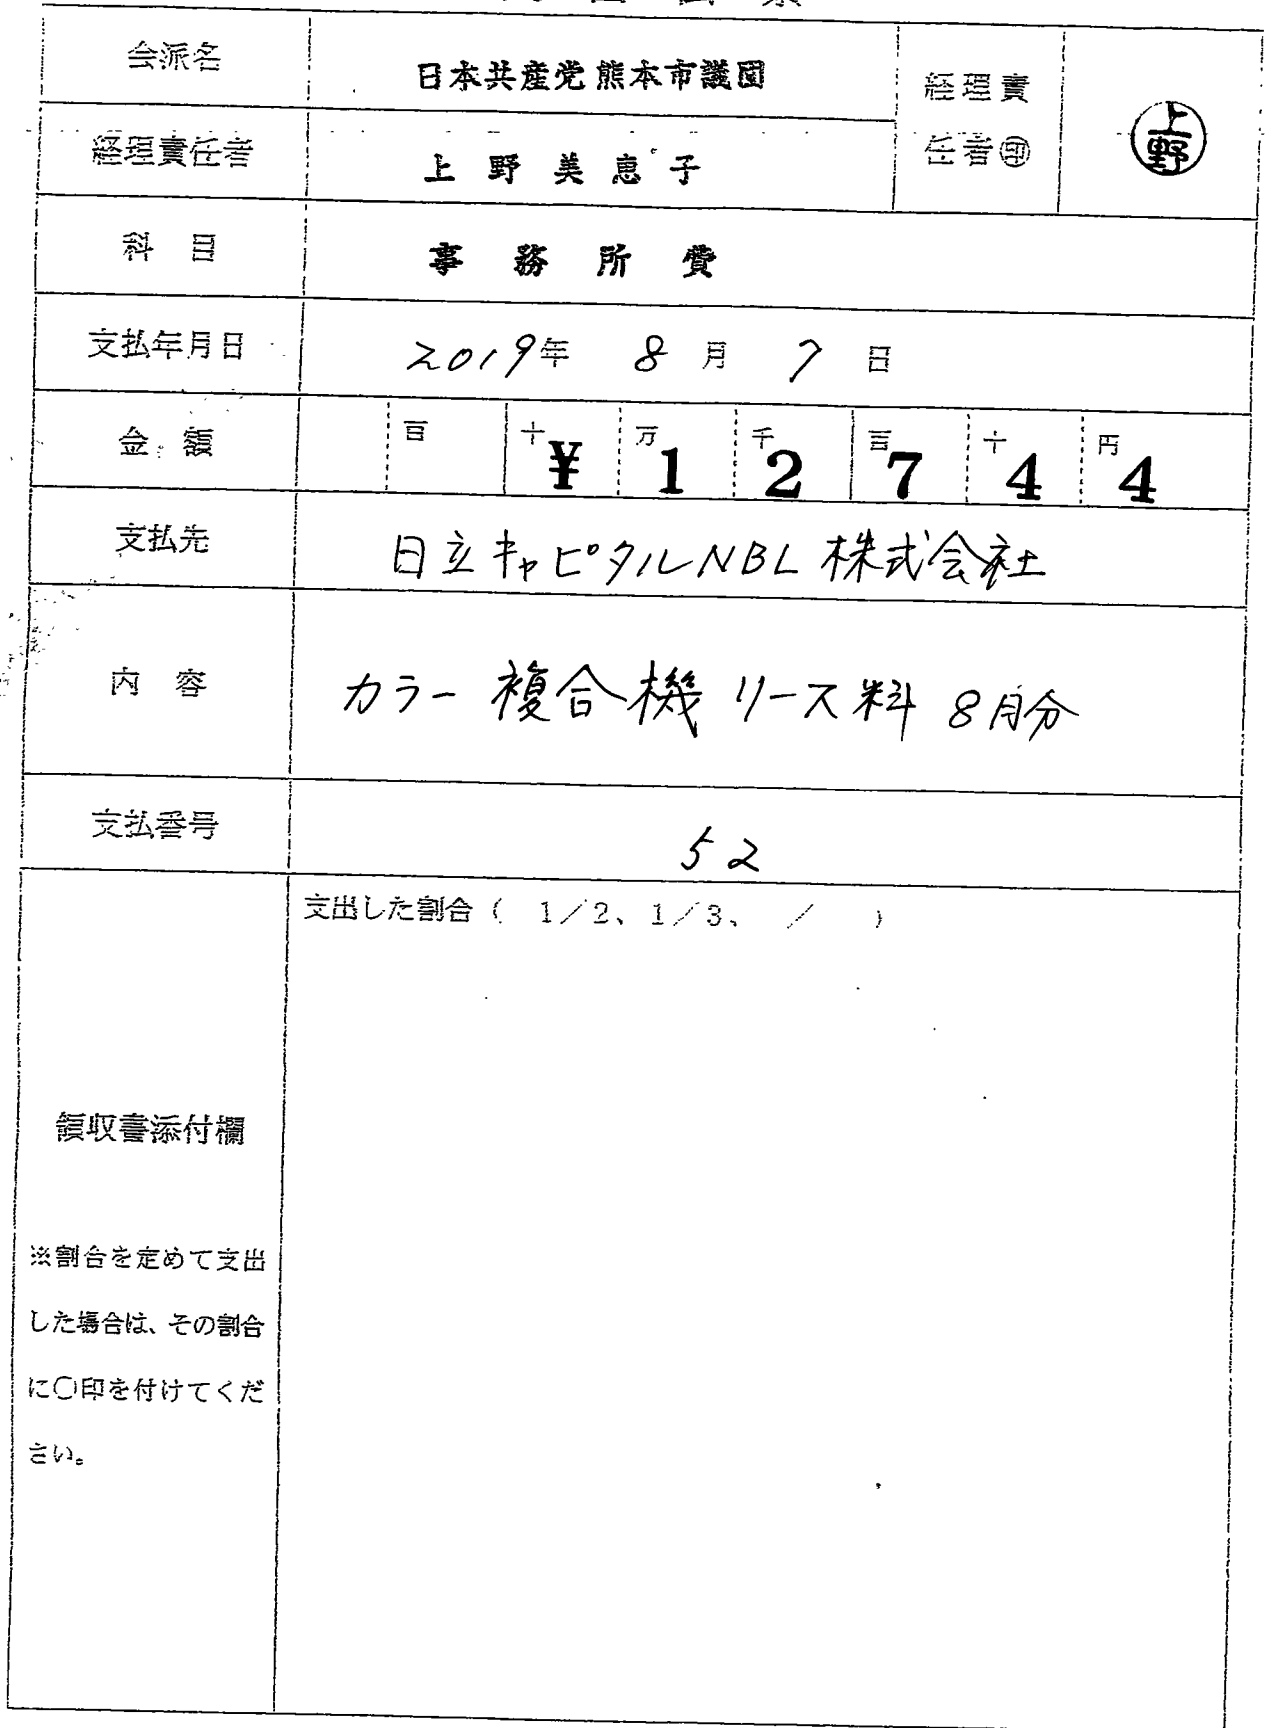 会派名 日本共産党熊本市議団 経理責任者㊞ 上野
経理責任者 上野美恵子
科目 事務所費
支払年月日 2019年 8月 7日
金額 百 十 万 千 百 十 円
¥12744
支払先 日立キャピタルNBL株式会社
内容 カラー複合機リース料 8月分
支払番号 52
支出した割合( 1/2、1/3、 / )
領収書添付欄
※割合を定めて支出
した場合は、その割合
に○印を付けてくだ
さい。